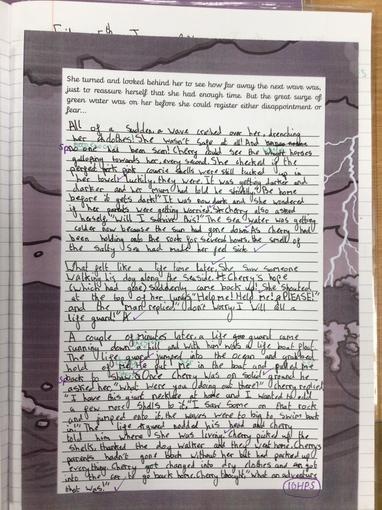 She turned and looked behind her to see how far away the next wave was,
just to reassure herself that she had enough time. But the great surge of
green water was on her before she could register either disappointment or
fear...
All of a sudden a wave crashed over her, drenching
her clothes! She wasn't safe at all! And
sp one had been seen! Cherry had see the white horses
galloping towards her, every second. She checked if the
pink cowrie shells were still tucked up in
her towel. Luckily, they were. It was getting darker and
darker and her mum had told he strictly, "Be home
before it gets dark!" It was now dark and she wondered
if her parents were getting worried. Cherry also asked
herself, "Will I survive this?" The sea water was getting
colder now because the sun had gone down. As Cherry had
been holding onto the rock for several hours, the smell of
the salty sea had made her feel sick.
What felt like a life time later, she saw someone
walking his dog along the seaside. Cherry's hope
(which had gone) suddenly came back up! She shouted
at the top of her lungs "Help me! Help me! PLEASE!"
and the man replied "don't worry I will call a
life guard!"
A couple of minutes later, a life guard came
running down a hill and with him was a life boat float.
The life guard jumped into the ocean and grabbed
hold of me. He put me in the boat and pulled me
sp back to shore. Once Cherry was on solid ground he
asked her, "What were you doing out there?" Cherry replied
"I have this giant necklace at home and I wanted to add
a few more shells to it. I saw some on that rock
and I jumped and the waves were to big to swim back
in." The life guard nodded his head and Cherry
told him where she was living. Cherry picked up the
shells, thanked the dog walker and they went home. Cherrys
parents hadn't gone back without her but had packed up
everything. Cherry got changed into dry clothes and got
into the car to go back home. Cherry thought, "What an adventure
that was!"
10HPS